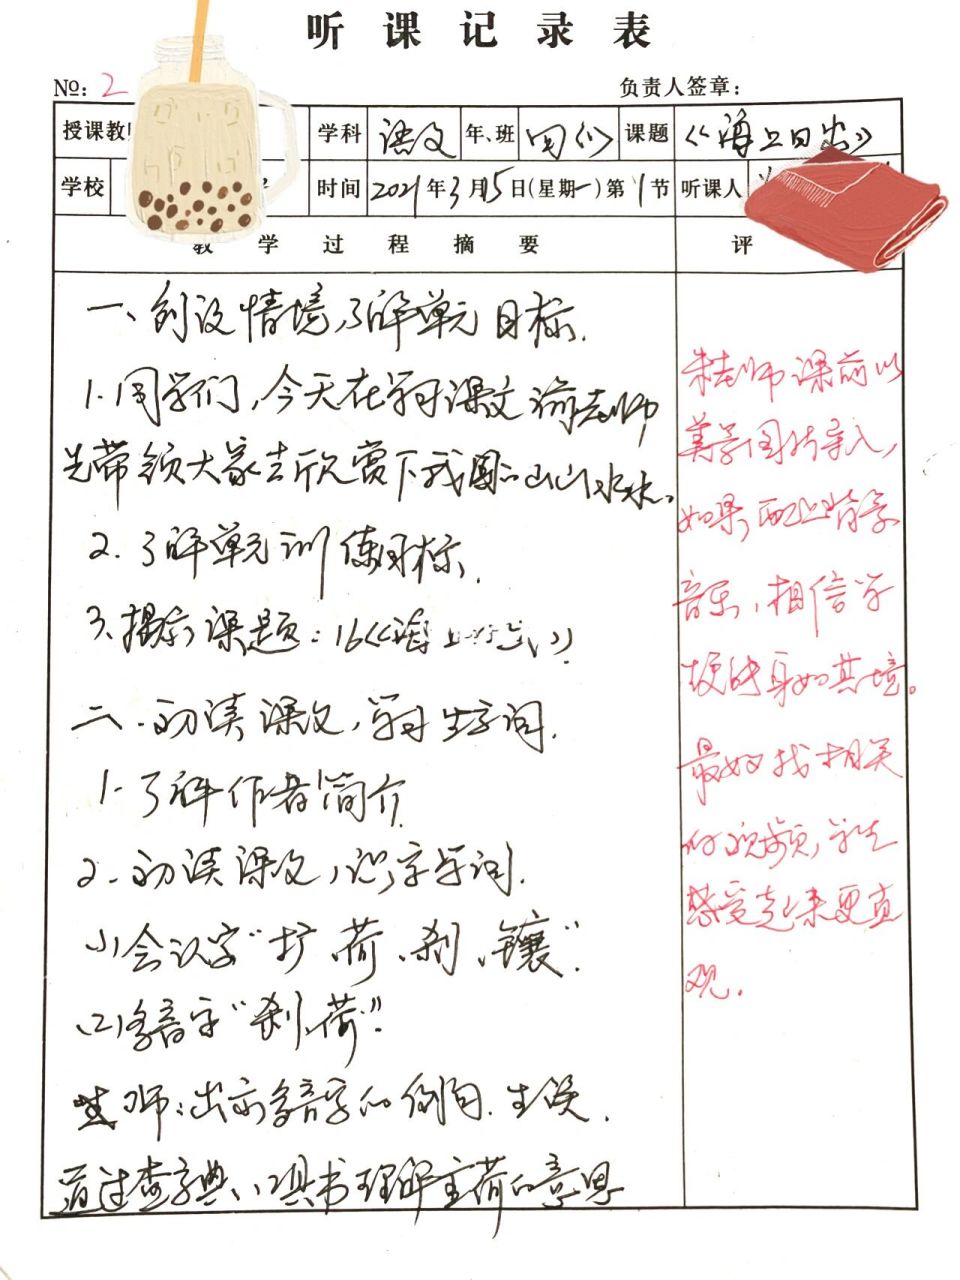 听课记录表
№: 2 负责人签章:
授课教 学科 语文 年、班 四(1) 课题 《海上日出》
学校 时间 2021年3月15日(星期一)第1节 听课人
教学过程摘要 评
一、创设情境,了解单元目标.
1.同学们,今天在学习课文前老师
先带领大家去欣赏下我国的山山水水。
2.了解单元训练目标.
3.揭示课题:16《海上日出》
二.初读课文,学习生字词.
1.了解作者简介
2.初读课文,识字学词.
(1)会认字“扩、荷、刹、镶”.
(2)多音字“刹、荷”.
师:出示多音字的例句.生读.
通过查字典、工具书理解重荷的意思
朱老师课前以
美景图片导入,
如果配上背景
音乐,相信学
更能身如其境。
最好找相关
的视频,学生
感受起来更直
观.